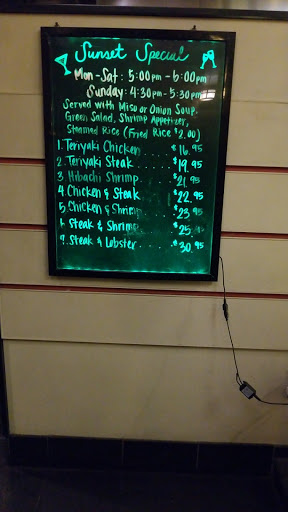 Sunset Special
Mon-Sat: 5:00pm - 6:00pm
Sunday: 4:30pm - 5:30pm
Served with Miso or Onion Soup,
Green Salad, Shrimp Appetizer,
Steamed Rice (Fried Rice $2.00)
1. Teriyaki Chicken .... $16.95
2. Teriyaki Steak ..... $19.95
3 Hibachi Shrimp ..... $21.95
4 Chicken & Steak ..... $22.95
5 Chicken & Shrimp .... $23.95
6 Steak & Shrimp .... $25.
7. Steak & Lobster .... $30.95